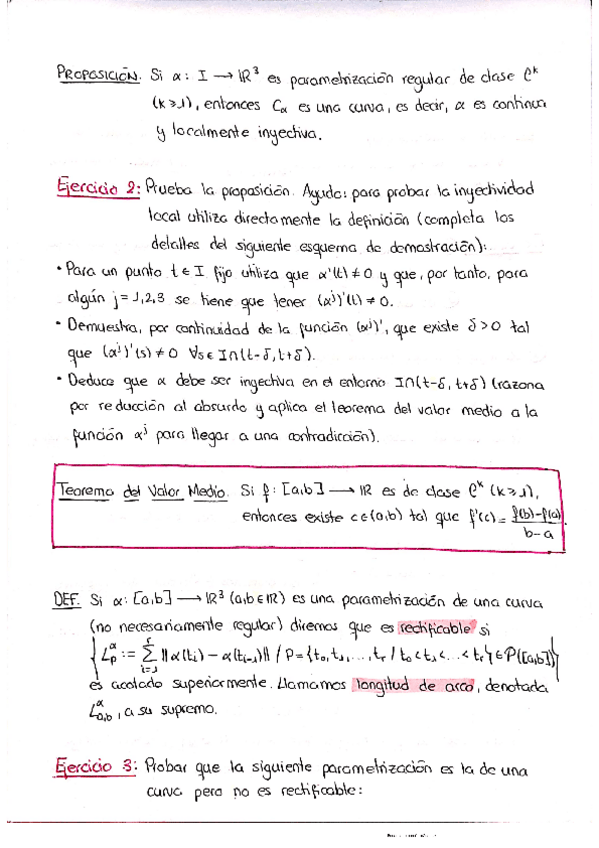 PROPOSICIÓN. Si α: I → ℝ³ es parametrización regular de clase 𝒞ᵏ
(k≥1), entonces Cα es una curva, es decir, α es continua
y localmente inyectiva.
Ejercicio 2: Prueba la proposición. Ayuda: para probar la inyectividad
local utiliza directamente la definición (completa los
detalles del siguiente esquema de demostración):
• Para un punto t ∈ I fijo utiliza que α'(t) ≠ 0 y que, por tanto, para
algún j = 1,2,3 se tiene que tener (αʲ)'(t) ≠ 0.
• Demuestra, por continuidad de la función (αʲ)', que existe δ > 0 tal
que (αʲ)'(s) ≠ 0 ∀s ∈ I∩(t-δ, t+δ).
• Deduce que α debe ser inyectiva en el entorno I∩(t-δ, t+δ) (razona
por reducción al absurdo y aplica el teorema del valor medio a la
función αʲ para llegar a una contradicción).
Teorema del Valor Medio. Si f: [a,b] → ℝ es de clase 𝒞ᵏ (k≥1),
entonces existe c∈(a,b) tal que f'(c) = f(b)-f(a)/b-a.
DEF. Si α: [a,b] → ℝ³ (a,b∈ℝ) es una parametrización de una curva
(no necesariamente regular) diremos que es rectificable si
{L_p^α := Σ_{i=1}^r ||α(tᵢ) - α(tᵢ₋₁)|| / P = {t₀, t₁, ..., tᵣ / t₀ < t₁ < ... < tᵣ} ∈ P([a,b])}
es acotado superiormente. Llamamos longitud de arco, denotada
L_{a,b}^α, a su supremo.
Ejercicio 3: Probar que la siguiente parametrización es la de una
curva pero no es rectificable: